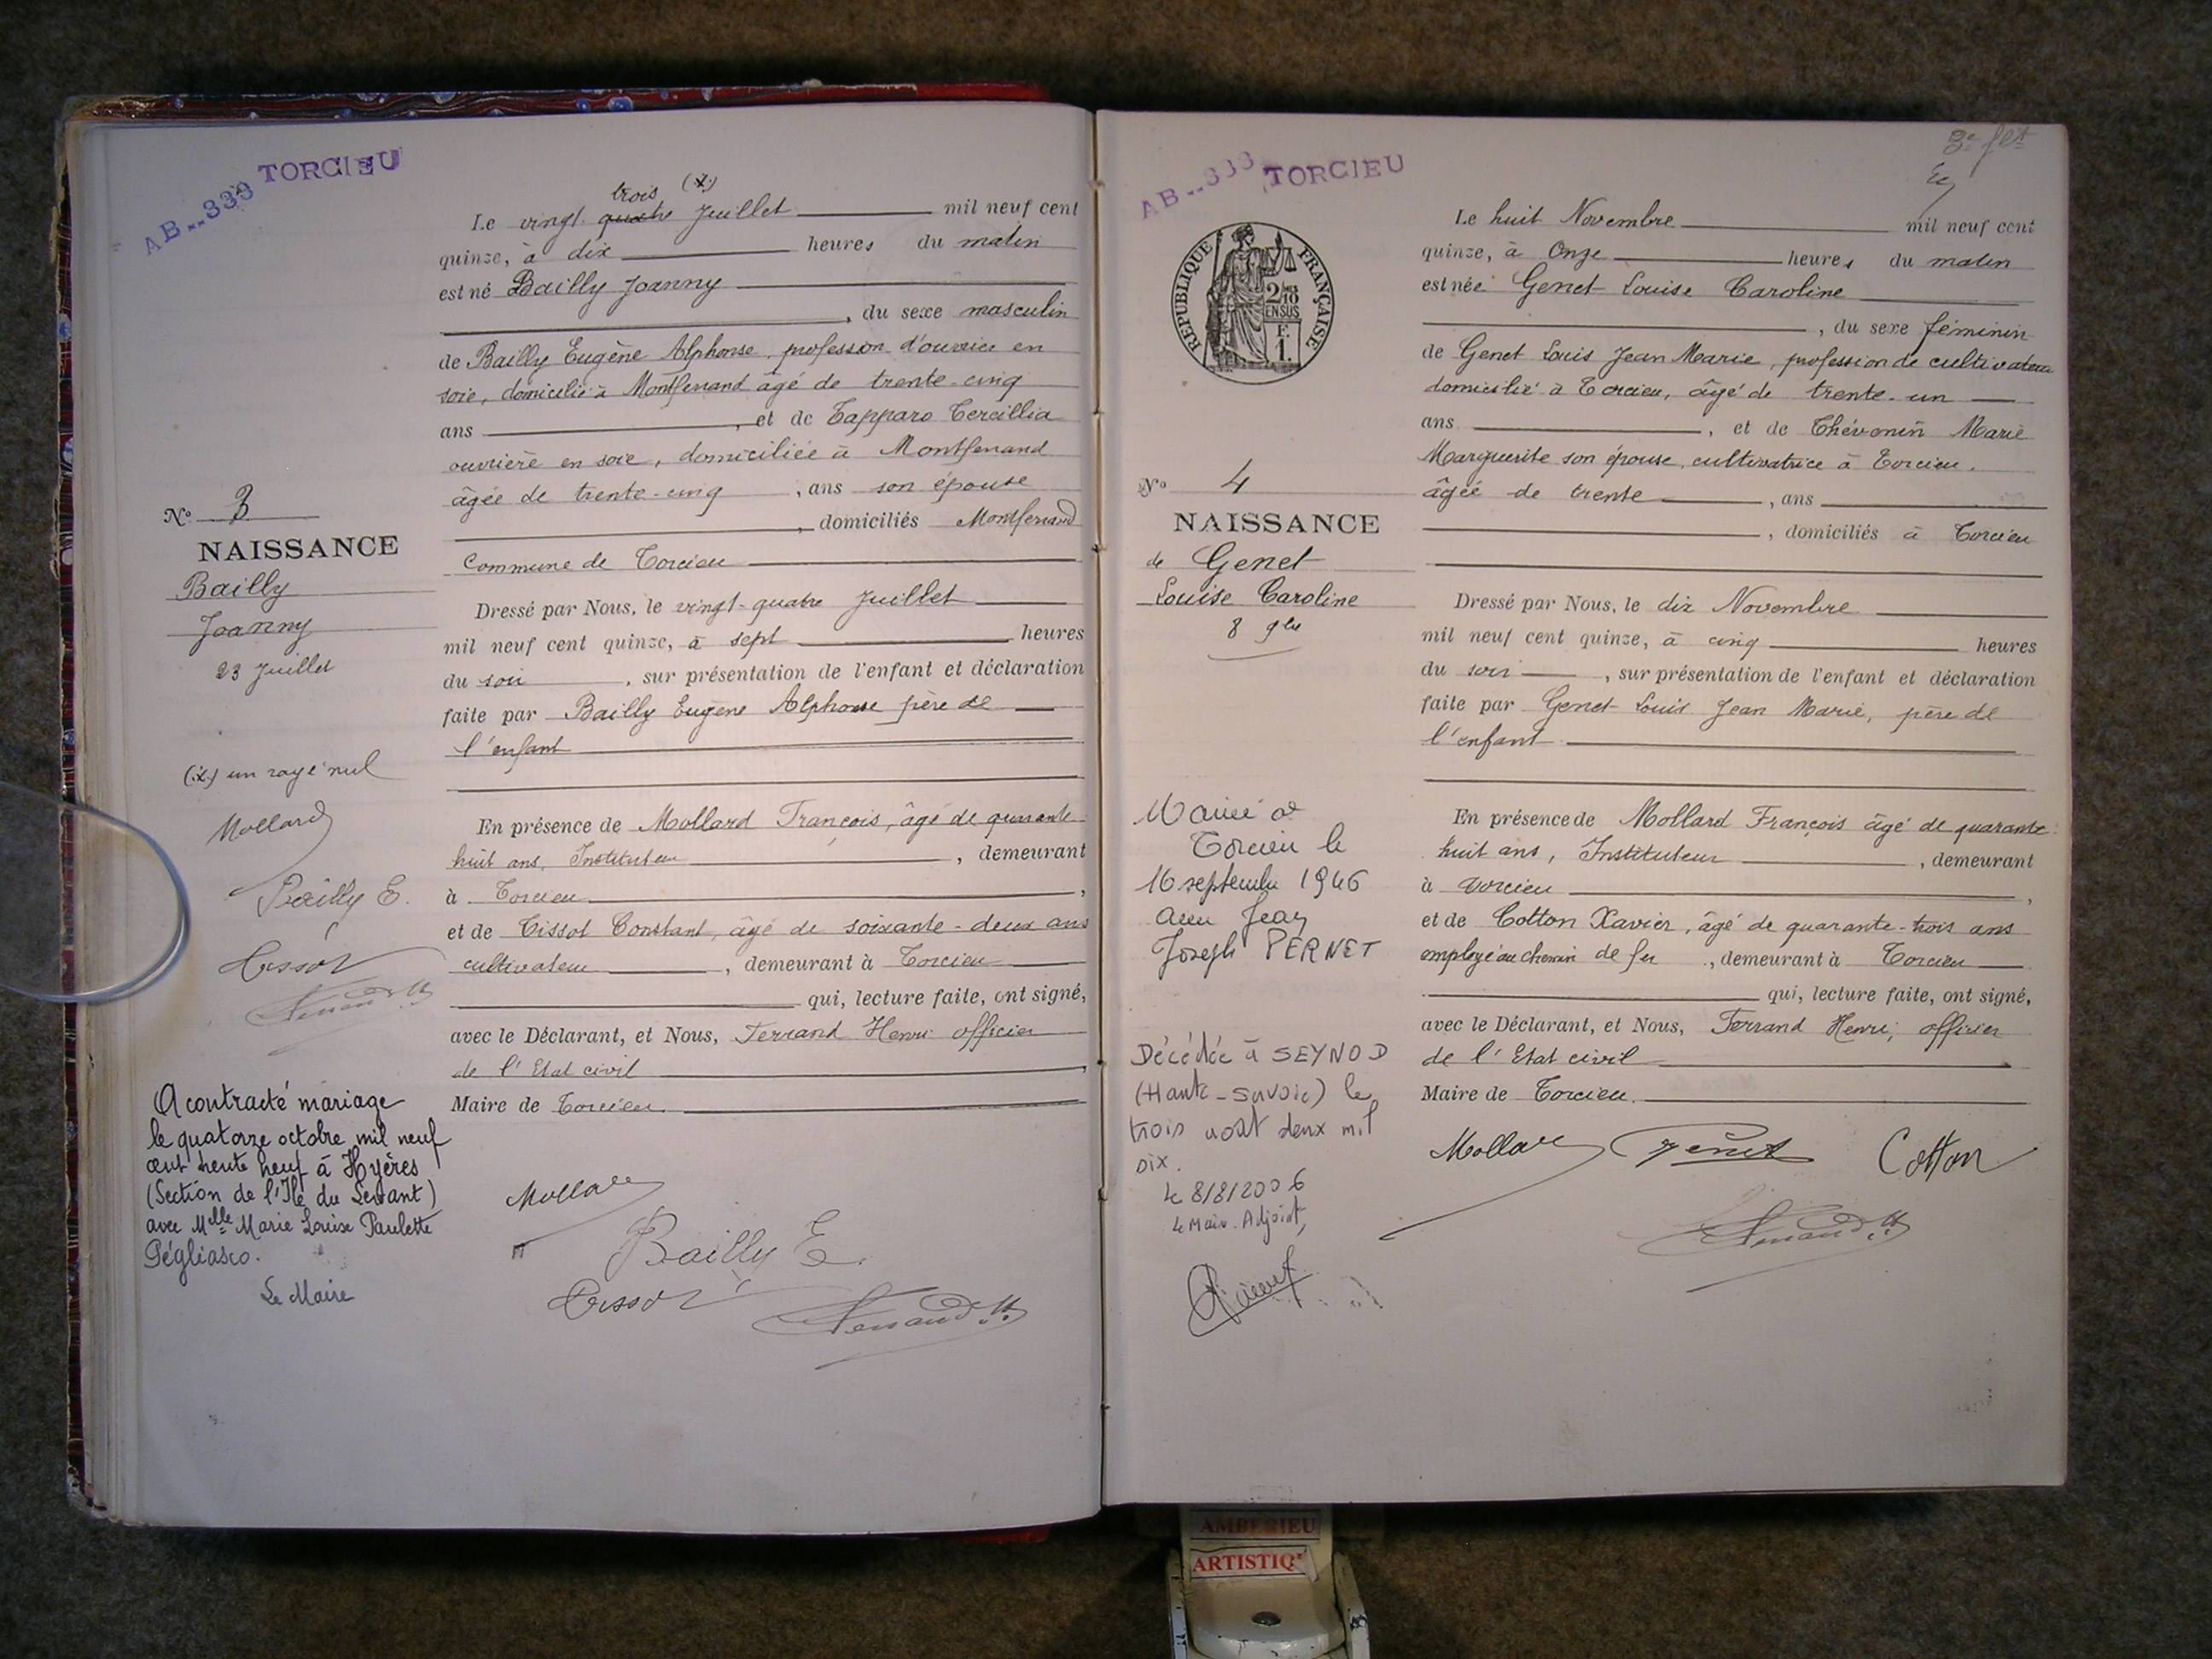 AB..339 TORCIEU
trois (x)
Le vingt quatre Juillet mil neuf cent
quinze, à dix heures du matin
est né Bailly Joanny
, du sexe masculin
de Bailly Eugène Alphonse, profession d'ouvrier en
soie, domicilié à Montferrand âgé de trente-cinq
ans , et de Tapparo Tercillia
ouvrière en soie, domiciliée à Montferrand
âgée de trente-cinq , ans son épouse
, domiciliés Montferrand
Commune de Torcieu
Dressé par Nous, le vingt-quatre Juillet
mil neuf cent quinze, à sept heures
du soir , sur présentation de l'enfant et déclaration
faite par Bailly Eugène Alphonse père de
l'enfant
En présence de Mollard François, âgé de quarante
huit ans, Instituteur , demeurant
à Torcieu ,
et de Tissot Constant, âgé de soixante-deux ans
cultivateur , demeurant à Torcieu
qui, lecture faite, ont signé,
avec le Déclarant, et Nous, Ferrand Henri officier
de l'Etat civil ,
Maire de Torcieu.
Mollard
Bailly E.
Tissot
Ferrand H.
No 3
NAISSANCE
Bailly
Joanny
23 Juillet
(x) un rayé nul
Mollard
Bailly E.
Tissot
Ferrand H.
A contracté mariage
le quatorze octobre mil neuf
cent trente neuf à Hyères
(Section de l'Ile du Levant)
avec Melle Marie Louise Paulette
Pégliasco.
Le Maire
AB..339 TORCIEU
3e flet
REPUBLIQUE FRANÇAISE
2/10
EN SUS
F.
1.
No 4
NAISSANCE
de Genet
Louise Caroline
8 9bre
Mariée à
Torcieu le
16 septembre 1946
avec Jean
Joseph PERNET
Décédée à SEYNOD
(Haute-Savoie) le
trois août deux mil
six.
le 8/8/2006
Le Maire-Adjoint,
Le huit Novembre mil neuf cent
quinze, à Onze heures du matin
est née Genet Louise Caroline
, du sexe féminin
de Genet Louis Jean Marie, profession de cultivateur
domicilié à Torcieu, âgé de trente-un
ans , et de Thévenin Marie
Marguerite son épouse, cultivatrice à Torcieu.
âgée de trente , ans
, domiciliés à Torcieu
Dressé par Nous, le dix Novembre
mil neuf cent quinze, à cinq heures
du soir , sur présentation de l'enfant et déclaration
faite par Genet Louis Jean Marie, père de
l'enfant
En présence de Mollard François âgé de quarante
huit ans, Instituteur , demeurant
à Torcieu ,
et de Cotton Xavier, âgé de quarante-trois ans
employé au chemin de fer , demeurant à Torcieu
qui, lecture faite, ont signé,
avec le Déclarant, et Nous, Ferrand Henri, officier
de l'Etat civil
Maire de Torcieu.
Mollard Genet Cotton
Ferrand H.
AMBERIEU
ARTISTIQ'